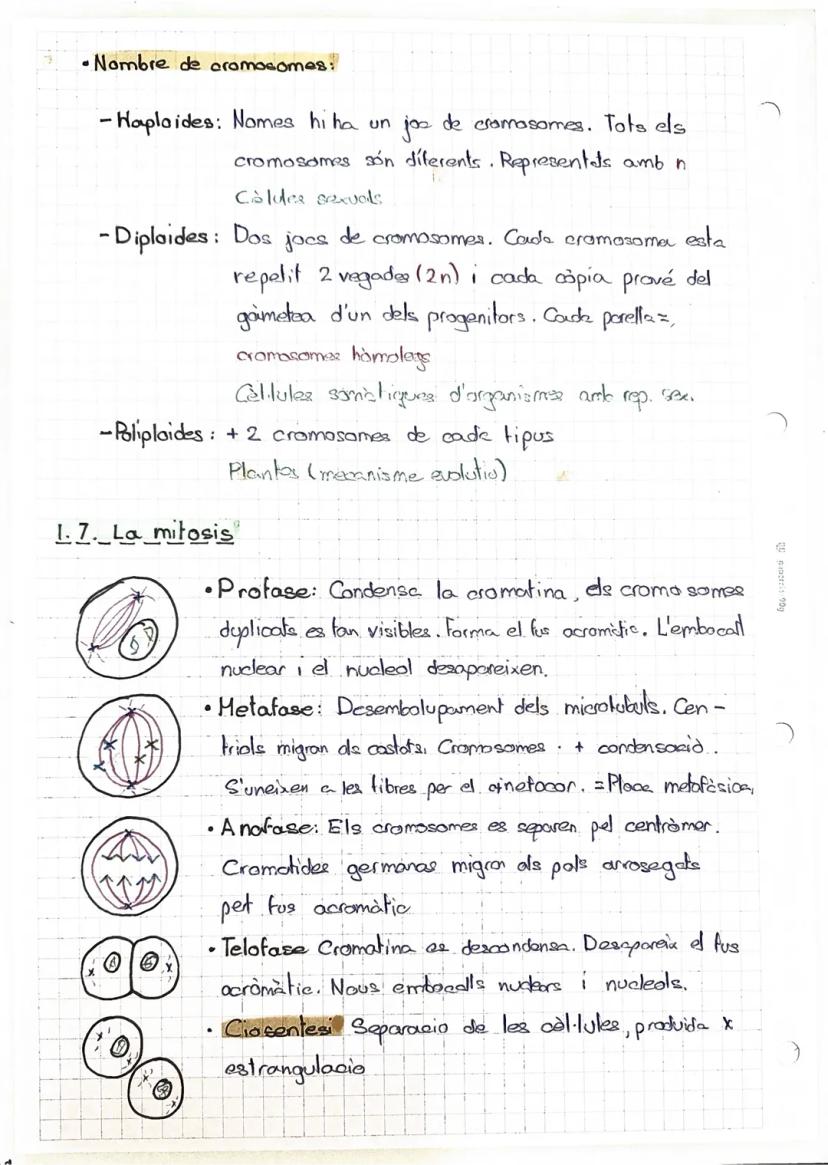 • Nombre de cromosomes:
- Haploides: Nomes hi ha un joc de cromosomes. Tots els
cromosomes són diferents. Representats amb n
Cèl·lules sexuals
- Diploides: Dos jocs de cromosomes. Cada cromosoma esta
repetit 2 vegades (2n) i cada còpia prové del
gàmetea d'un dels progenitors. Cada parella =,
cromosomes hòmolegs
Cèl·lules somàtiques d'organismes amb rep. sex.
- Poliploides: + 2 cromosomes de cada tipus
Plantes (mecanisme evolutiu)
1.7. La mitosis
• Profase: Condensa la cromatina, els cromosomes
duplicats es fan visibles. Forma el fus acromàtic. L'embocall
nuclear i el nucleol desapareixen.
• Metafase: Desembolupament dels microtubuls. Cen-
triols migran als costats. Cromosomes · + condensació.
S'uneixen a les fibres per el cinetocor. = Placa metafàsica,
• Anafase: Els cromosomes es separen pel centròmer.
Cromatides germanas migran als pols arrosegats
pet fus acromàtic
• Telofase Cromatina es descondensa. Desapareix el fus
acròmàtic. Nous embocalls nuclears i nucleols.
• Ciocentesi Separacio de les cèl·lules, produida x
estrangulacio